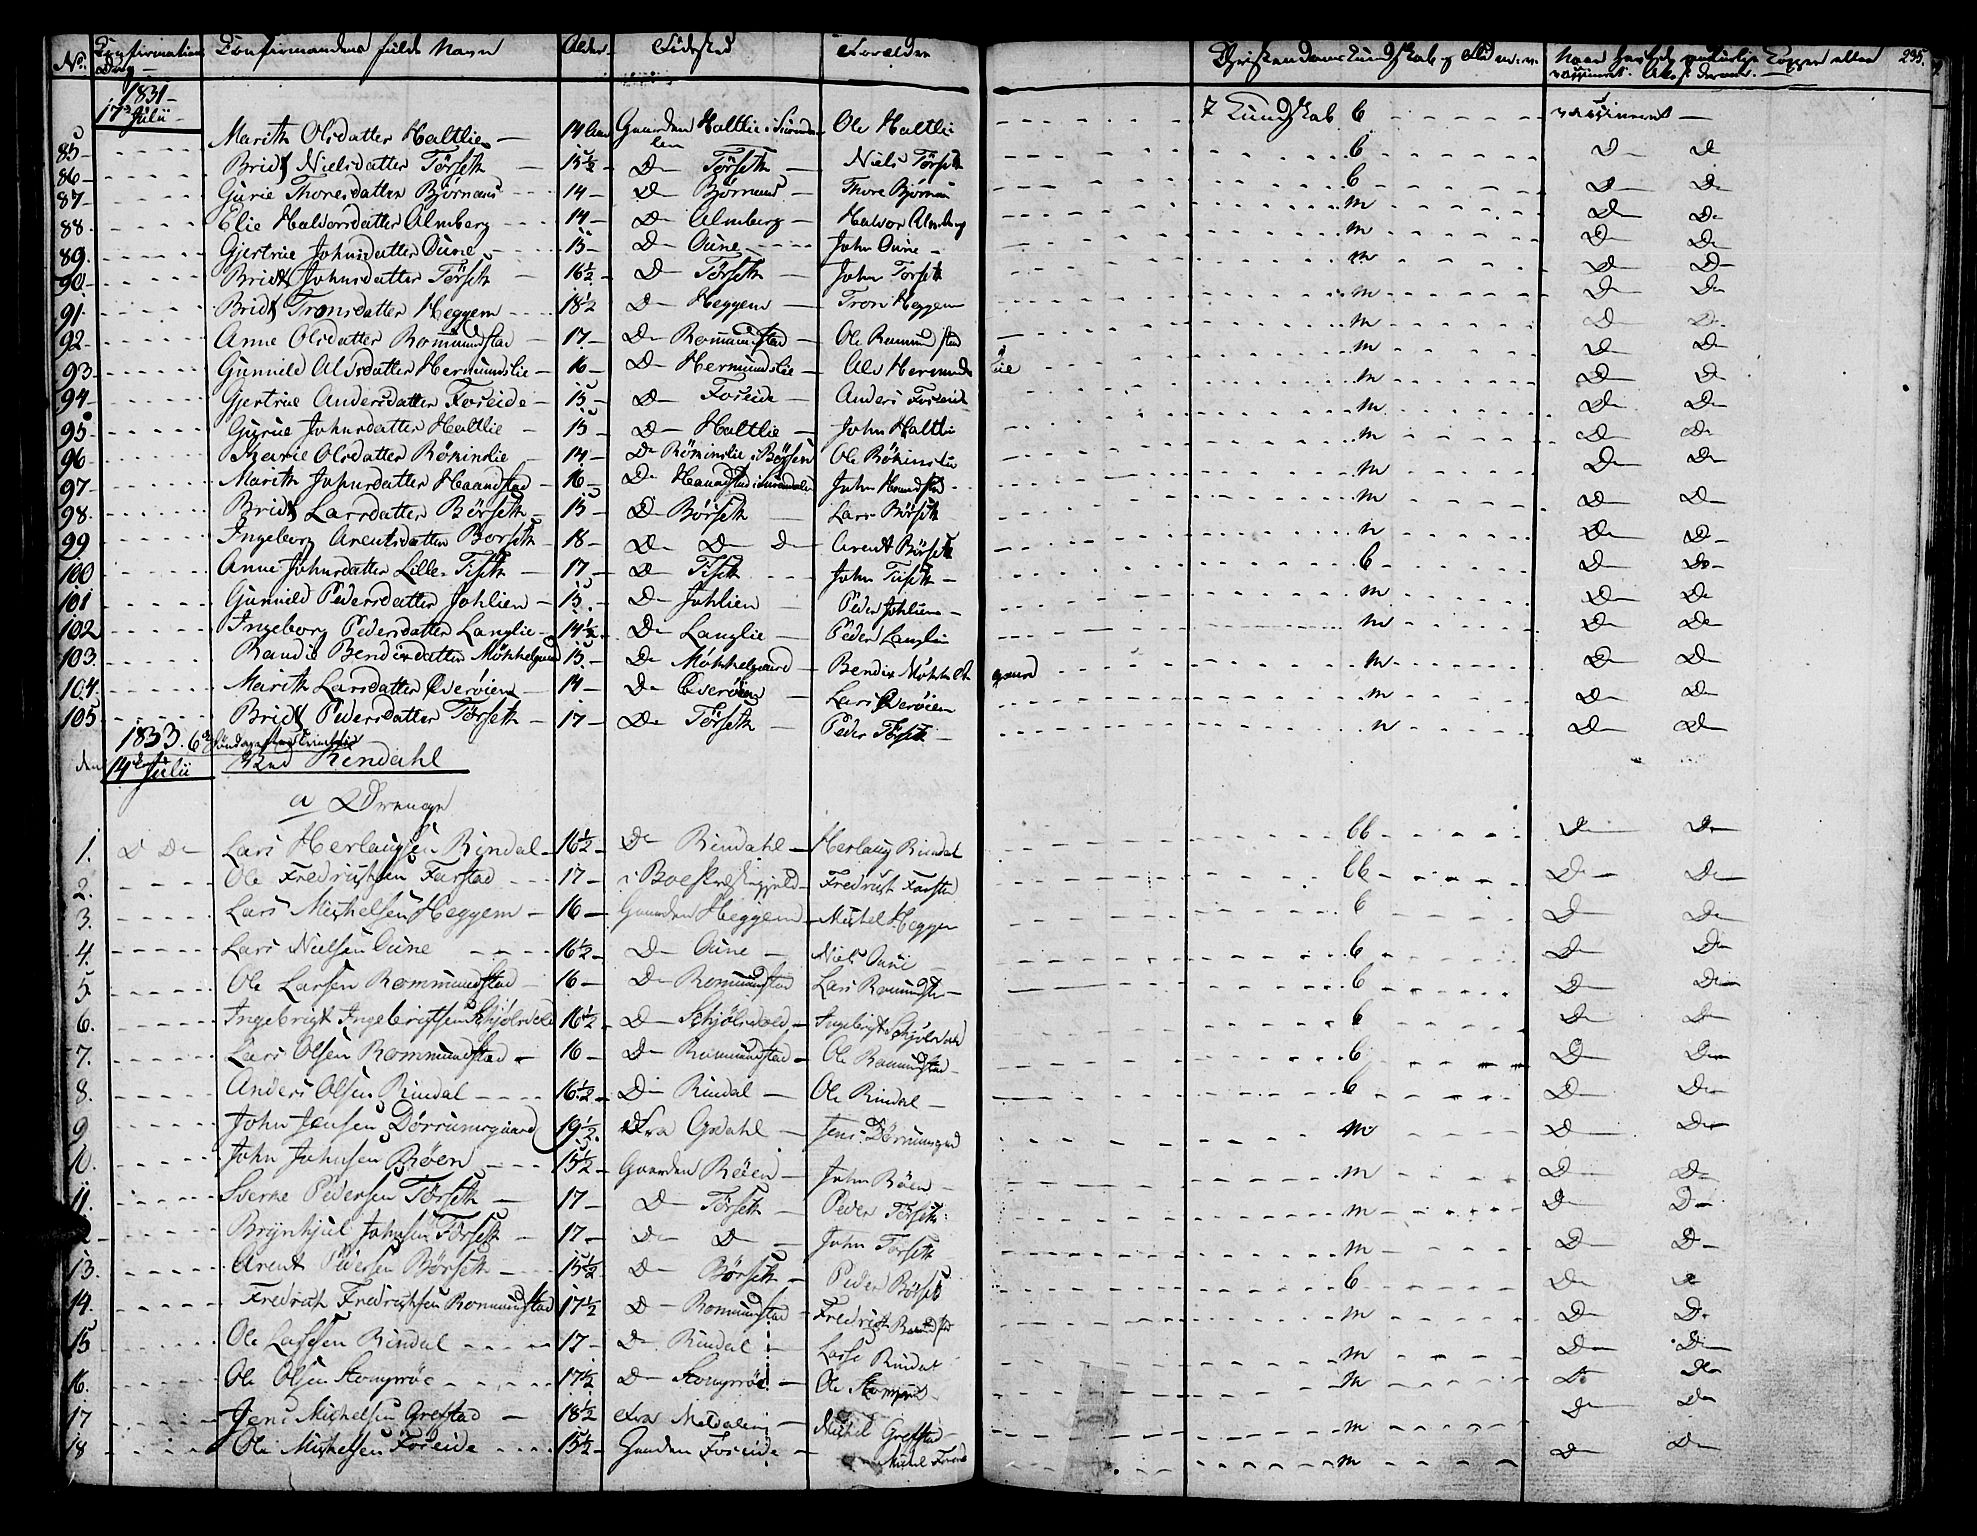 No. Confirmations Dag Confirmandens fulde Navn Alder Födested Forældre Christendoms Kundskab 235.
1831
17de Julii
85 Marith Olsdatter Haltlie 14 Aar Gaarden Haltlie i Surendalen Ole Haltlie 7 Kundskab G vaccineret
86 Brit Nielsdatter Törseth 15½ Do Törseth Niels Törseth G Do Do
87 Gurie Thoresdatter Björnaas 14 Do Thore G Do Do
88 Elie Halvorsdatter Almberg 14 Do Almberg Halvor Almberg M Do Do
89 Gjertrue Johnsdatter Oune 15 Do Oune John Oune M Do Do
90 Brit Johnsdatter Törseth 16½ Do Törseth John Törseth M Do Do
91 Brit Tronsdatter Heggem 18½ Do Heggem Tron Heggem M Do Do
92 Anne Olsdatter Rommundstad 17 Do Rommundstad Ole Rommundstad M Do Do
93 Gunnild Alvsdatter Hermundslie 16 Do Hermundslie Alv Hermundslie M Do Do
94 Gjertrue Andersdatter Foreide 15 Do Foreide Anders Foreide M Do Do
95 Gurue Johnsdatter Haltlie 15 Do Haltlie John Haltlie M Do Do
96 Marie Olsdatter Rökinslie 14 Do Rökinslie i Ole Rökinslie M Do Do
97 Marith Johnsdatter Haandstad 16 Do Haandstad i Surendalen John Haandstad M Do Do
98 Brit Larsdatter Börseth 15 Do Börseth Lars Börseth M Do Do
99 Ingeborg Arentsdatter Börseth 18 Do Do Do Arent Börseth M Do Do
100 Anne Johnsdatter Lille-Tiseth 17 Do Tiseth John Tiseth G Do Do
101 Gunnild Pedersdatter Johlien 15 Do Johlien Peder Johlien M Do Do
102 Ingeborg Pedersdatter Langlie 14½ Do Langlie Peder Langlie M Do Do
103 Randie Bendixdatter Mökkelgaard 15 Do Mökkelgaard Bendix Mökkelgaard M Do Do
104 Marith Larsdatter Qveröien 14 Do Qveröien Lars Qveröien M Do Do
105 Brit Pedersdatter Törseth 17 Do Törseth Peder Törseth M Do Do
1833 6te Söndag efter Trinitatis
den 14de Julii Rendahl
a Drenge
1. D Do Lars Herlaugsen Rindal 16½ Do Rindahl Herlaug Rindal Do Do
2. Ole Fredrichsen Farstad 17 i Fredrich Farstad Do Do
3. Lars Michelsen Heggem 16 Gaarden Heggem Michel Heggem G Do Do
4. Lars Nielsen Oune 16½ Do Oune Niels Oune G Do Do
5. Ole Larsen Rommundstad 16 Do Rommundstad Lars Rommundstad G Do Do
6. Ingebrigt Ingebrigtsen Schjölsvold 16½ Do Schjölsvold Ingebrigt Schjölsvold G Do Do
7. Lars Olsen Rommundstad 16 Do Rommundstad Ole Rommundstad G Do Do
8. Anders Olsen Rindal 16½ Do Rindal Ole Rindal G Do Do
9 John Jensen Dörrumsgaard 19½ Fra Opdahl Jens Dörrumsgaard M Do Do
10. John Johnsen Röen 15½ Gaarden Röen John Röen M Do Do
11. Sverke Pedersen Törseth 17 Do Törseth Peder Törseth M Do Do
Brynhjul Johnsen Törseth 17 Do Do John Törseth M Do Do
13. Arent Pedersen Börseth 15½ Do Börseth Peder Börseth G Do Do
14. Fredrich Fredrichsen Rommundstad 17½ Do Rommundstad Fredrich Rommundstad M Do Do
15 Ole Lassesen Rindal 17 Do Rindal Lasse Rindal M Do Do
16. Ole Olsen Stompröe 17½ Do Stompröe Ole Stompröe M Do Do
17 Jens Michelsen Grefstad 18½ Fra Meldalen Michel Grefstad M Do Do
18 Ole Michelsen Foreide 15½ Gaarden Foreide Michel Foreide M Do Do